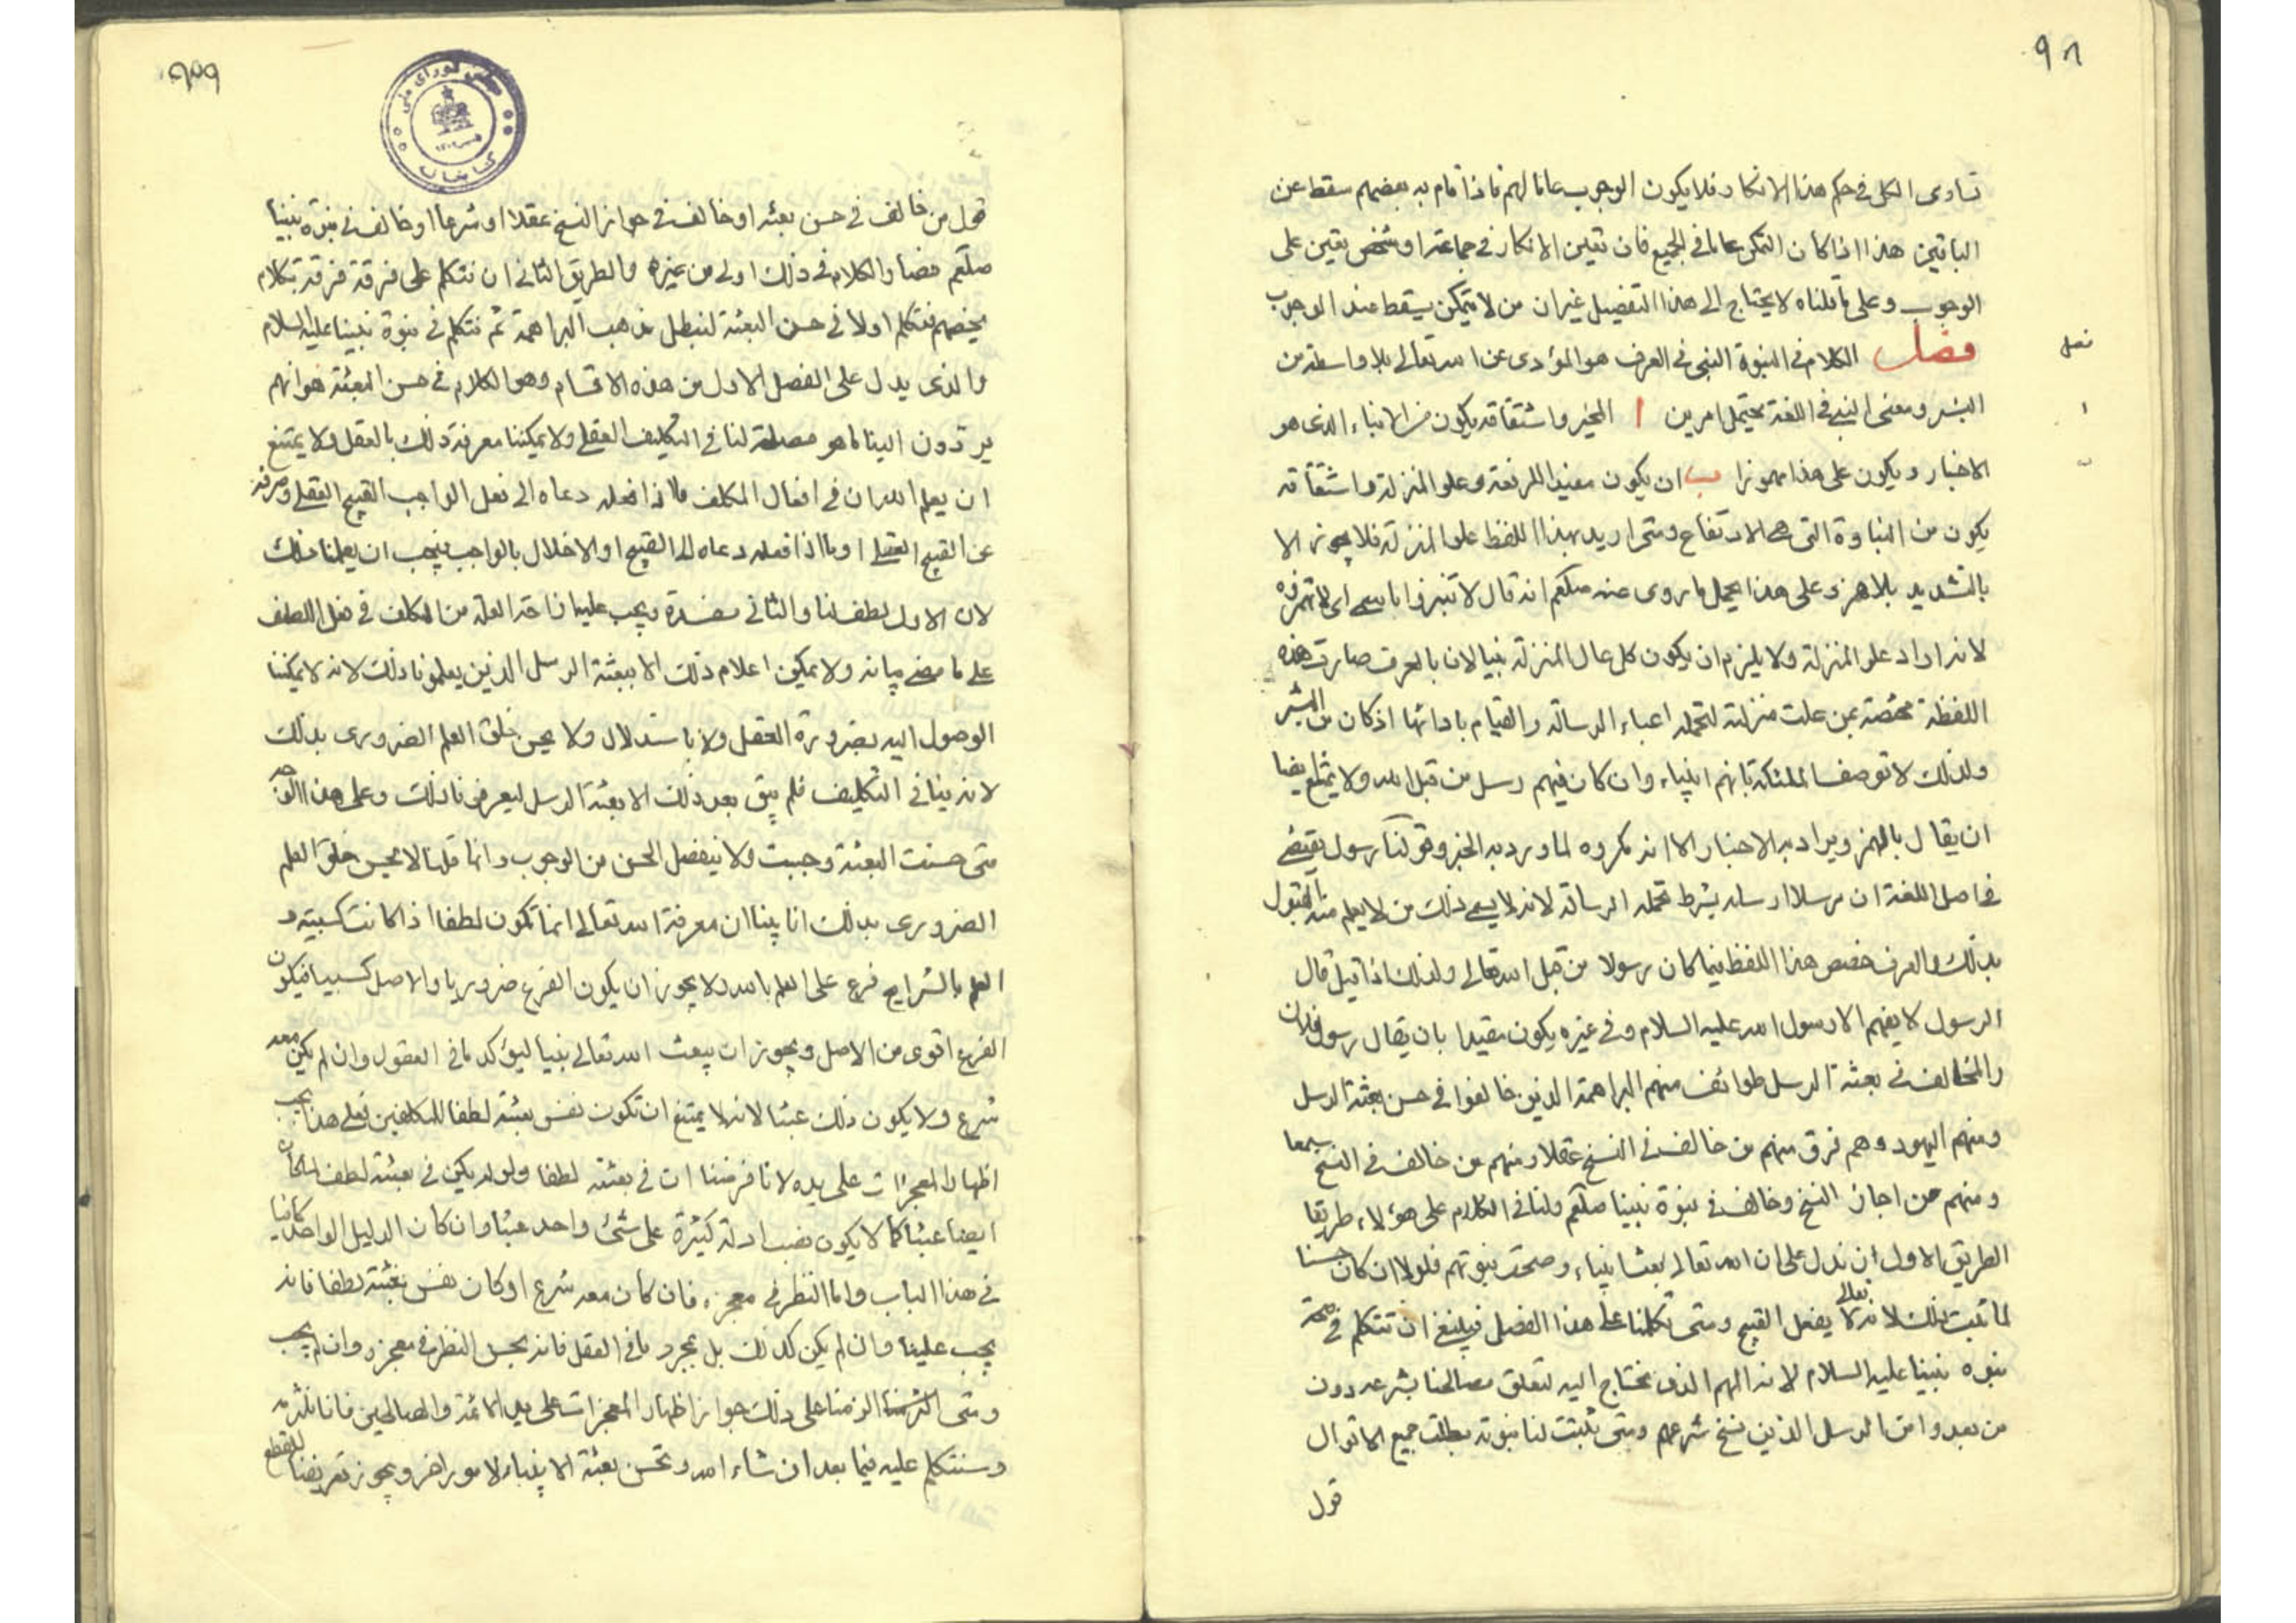 ٩٨
تساوى الكل فى حكم هذا الانكار فلا يكون الوجوب عاما لهم فاذا قام به بعضهم سقط عن
الباقين هذا اذا كان التمكن عاما فى الجميع فان تعين الانكار فى جماعة او شخص تعين على
الوجوب وعلى ما قلناه لا يحتاج الى هذا التفصيل غير ان من لا يتمكن يسقط عنه الوجوب
فصل
فصل الكلام فى النبوة النبى فى العرف هو المؤدى عن الله تعالى بلا واسطة من
البشر ومعنى النبى فى اللغة يحتمل امرين ا المخبر واشتقاقه يكون من الانباء الذى هو
الاخبار ويكون على هذا مهموزا ب ان يكون مفيدا للرفعة وعلو المنزلة واشتقاقه
يكون من النباوة التى هى الارتفاع ومتى اريد بهذا اللفظ علو المنزلة فلا يجوز الا
بالتشديد بلا همز وعلى هذا يحمل ما روى عنه صلعم انه قال لا تنبزوا باسمى اى لا تهمزوه
لانه اراد علو المنزلة ولا يلزم ان يكون كل عال المنزلة نبيا لان بالعرف صارت هذه
اللفظة مختصة بمن علت منزلته لتحمله اعباء الرسالة والقيام بادائها اذ كان من البشر
ولذلك لا توصف الملئكة بانهم انبياء وان كان فيهم رسل من قبل الله ولا يمتنع ايضا
ان يقال بالهمز ويراد به الاخبار الا انه مكروه لما ورد به الخبر وقولنا رسول يقتضى
فى اصل اللغة ان مرسلا ارسله بشرط تحمله الرسالة لانه لا يسمى ذلك من لا يعلم منه القبول
بذلك والعرف خصص هذا اللفظ فيما كان رسولا من قبل الله تعالى ولذلك اذا قيل قال
الرسول لا يفهم الا رسول الله عليه السلام وفى غيره يكون مقيدا بان يقال رسول فلان
والمخالف فى بعثة الرسل طوائف منهم البراهمة الذين خالفوا فى حسن بعثة الرسل
ومنهم اليهود وهم فرق منهم من خالف فى النسخ عقلا ومنهم من خالف فى النسخ سمعا
ومنهم من اجاز النسخ وخالف فى نبوة نبينا صلعم ولنا فى الكلام على هؤلاء طريقا
الطريق الاول ان ندل على ان الله تعالى بعث انبياء وصحت نبوتهم فلولا ان كان حسنا
لما ثبت ذلك لانه تعالى لا يفعل القبيح ومتى تكلمنا على هذا الفصل فينبغى ان نتكلم فى صحة
نبوة نبينا عليه السلام لانه المهم الذى نحتاج اليه لتعلق مصالحنا بشرعه دون
من بعد وا من الرسل الذين نسخ شرعهم ومتى ثبتت لنا نبوته بطلت جميع الاقوال
قول
قول من خالف فى حسن بعثه او خالف فى جواز النسخ عقلا او شرعا او خالف فى نبوة نبينا
صلعم فصار الكلام فى ذلك اولى من غيره والطريق الثانى ان نتكلم على فرقة فرقة بكلام
يخصهم فنتكلم اولا فى حسن البعثة لنبطل مذهب البراهمة ثم نتكلم فى نبوة نبينا عليه السلام
والذى يدل على الفصل الاول من هذه الاقسام وهو الكلام فى حسن البعثة هو انهم
يردون الينا ما هو مصلحة لنا فى التكليف العقلى ولا يمكننا معرفة ذلك بالعقل ولا يمتنع
ان يعلم الله ان فى افعال المكلف ما اذا فعله دعاه الى فعل الواجب القبيح العقلى وصرفه
عن القبيح العقلى او ما اذا فعله دعاه الى القبيح او الاخلال بالواجب فيجب ان يعلمنا ذلك
لان الاول لطف لنا والثانى مفسدة ويجب عليه ازاحة العلة من المكلف فى فعل اللطف
على ما مضى بيانه ولا يمكن اعلام ذلك الا ببعثة الرسل الذين يعلمونا ذلك لانه لا يمكننا
الوصول اليه بضرورة العقل ولا باستدلال ولا يحسن خلق العلم الضرورى بذلك
لانه ينافى التكليف فلم يبق بعد ذلك الا بعثة الرسل ليعرفونا ذلك وعلى هذا الوجه
متى حسنت البعثة وجبت ولا ينفصل الحسن من الوجوب وانما قلنا لا يحسن خلق العلم
الضرورى بذلك انا بينا ان معرفة الله تعالى انما تكون لطفا اذا كانت كسبية و
العلم بالشرايع فرع على العلم بالله ولا يجوز ان يكون الفرع ضروريا والاصل كسبيا فيكون
الفرع اقوى من الاصل ويجوز ان يبعث الله تعالى نبيا ليؤكد ما فى العقول وان لم يكن معه
شرع ولا يكون ذلك عبثا لانه لا يمتنع ان تكون نفس بعثته لطفا للمكلفين فعلى هذا يجب
اظهار المعجزات على يده لانا فرضنا ان فى بعثته لطفا ولو لم يكن فى بعثته لطف لما كان
ايضا عبثا كما لا يكون نصب ادلة كثيرة على شئ واحد عبثا وان كان الدليل الواحد كافيا
فى هذا الباب واما النظر فى معجزه فان كان معه شرع او كان نفس بعثته لطفا فانه
يجب علينا وان لم يكن كذلك بل بمجرد ما فى العقل فانه يحسن النظر فى معجزه وان لم يجب
ومتى الزمنا على ذلك جواز اظهار المعجزات على يد الائمة والصالحين فانا نلتزمه
وسنتكلم عليه فيما بعد ان شاء الله وتحسن بعثة الانبياء لامور اخر ويجوز تعريضنا للقطع
مجلس شورای ملی
کتابخانه